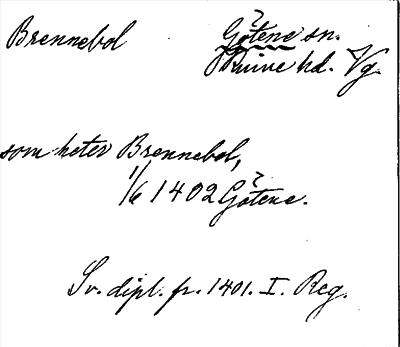 Brennebol
? Götene sn.
Skuive hd. Vg.
som heter Brennebol,
1/6 1402 ? Götene.
Sv. dipl. fr. 1401. I. Reg.